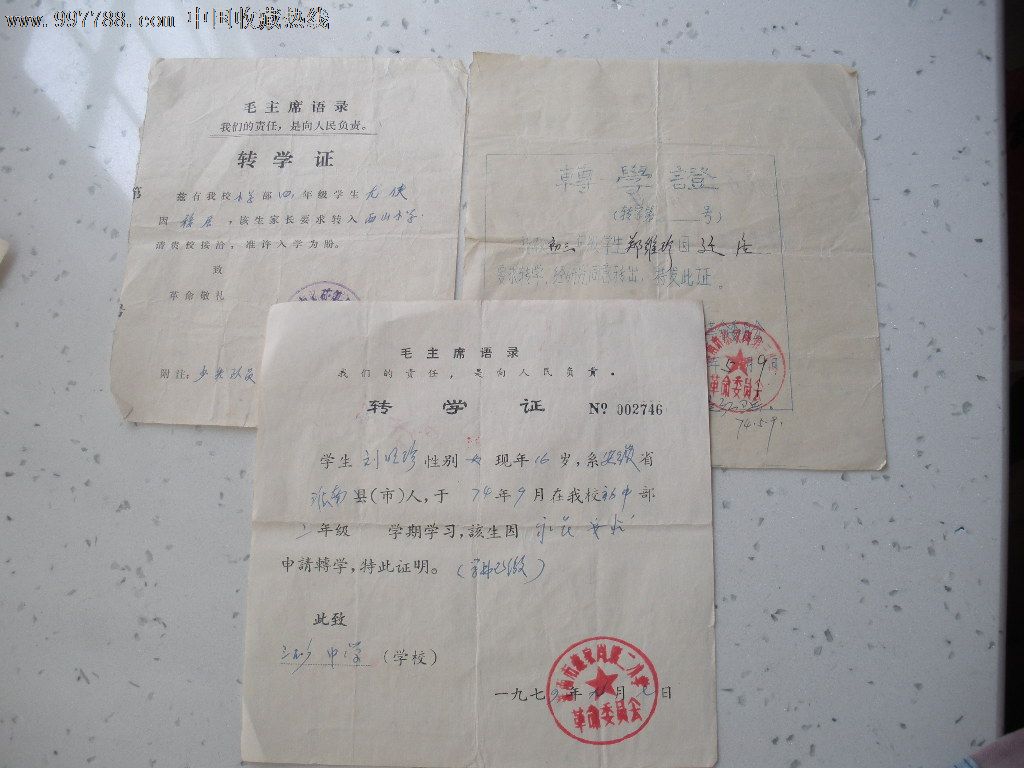 www.997788.com 中国收藏热线
毛主席语录
我们的责任，是向人民负责。
转学证
第
兹有我校小学部四年级学生尤侠
因移居，该生家长要求转入西山小学，
请贵校接洽，准许入学为盼。
致
革命敬礼
附注：少先队员
轉學證
(转字第 号)
初三年级学生郑维珍因
要求转学，经研究同意转出，特发此证。
年5月9日
革命委员会
74.5.9.
毛主席语录
我们的责任，是向人民负责。
转学证 № 002746
学生刘 珍性别女现年16岁，系安徽省
淮南县(市)人，于74年9月在我校初中部
二年级 学期学习，该生因
申請轉学，特此证明。
此致
中学(学校)
一九七 年 月 日
第二小学
革命委员会